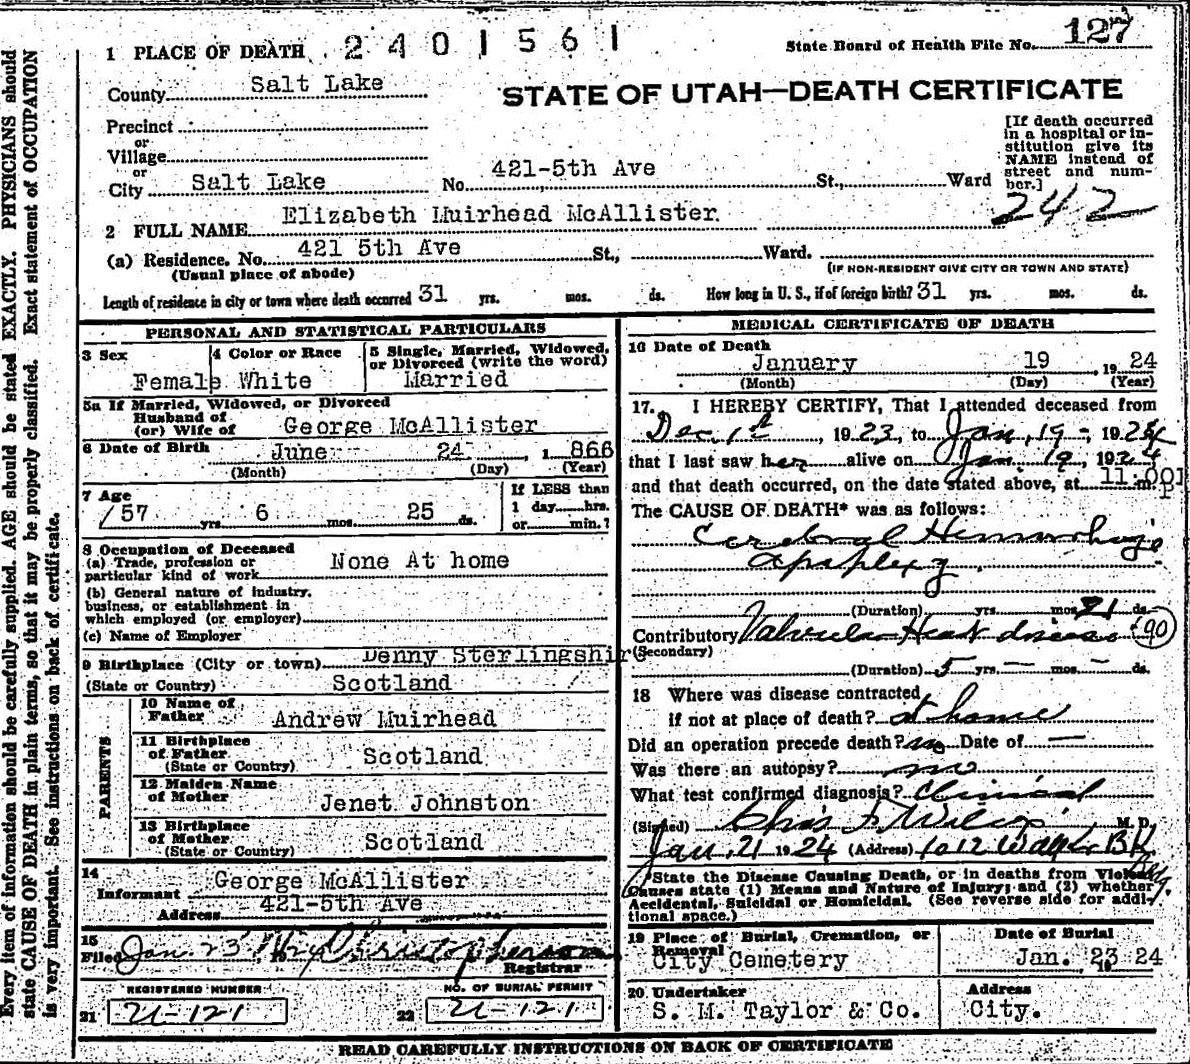 Every item of information should be carefully supplied. AGE should be stated EXACTLY. PHYSICIANS should
state CAUSE OF DEATH in plain terms, so that it may be properly classified. Exact statement of OCCUPATION
is very important. See instructions on back of certificate.
1 PLACE OF DEATH 2401561
State Board of Health File No. 127
County Salt Lake
STATE OF UTAH—DEATH CERTIFICATE
Precinct
or
Village
or
City Salt Lake No. 421-5th Ave St., Ward
[If death occurred
in a hospital or in-
stitution give its
NAME instead of
street and num-
ber.]
242
2 FULL NAME Elizabeth Muirhead McAllister.
(a) Residence. No. 421 5th Ave St., Ward.
(Usual place of abode) (IF NON-RESIDENT GIVE CITY OR TOWN AND STATE)
Length of residence in city or town where death occurred 31 yrs. mos. ds. How long in U. S., if of foreign birth? 31 yrs. mos. ds.
PERSONAL AND STATISTICAL PARTICULARS
3 Sex 4 Color or Race 5 Single, Married, Widowed,
or Divorced (write the word)
Female White Married
5a If Married, Widowed, or Divorced
Husband of
(or) Wife of George McAllister
6 Date of Birth June 24, 1866
(Month) (Day) (Year)
7 Age If LESS than
57 yrs. 6 mos. 25 ds. 1 day hrs.
or min.?
8 Occupation of Deceased
(a) Trade, profession or
particular kind of work None At home
(b) General nature of industry,
business, or establishment in
which employed (or employer)
(c) Name of Employer
9 Birthplace (City or town) Denny Sterlingshire
(State or Country) Scotland
PARENTS
10 Name of
Father Andrew Muirhead
11 Birthplace
of Father
(State or Country) Scotland
12 Maiden Name
of Mother Jenet Johnston
13 Birthplace
of Mother
(State or Country) Scotland
14
Informant George McAllister
Address 421-5th Ave
15
Filed Jan. 23 Christopherson
Registrar
REGISTERED NUMBER NO. OF BURIAL PERMIT
21 U-121 22 U-121
MEDICAL CERTIFICATE OF DEATH
16 Date of Death
January 19, 1924
(Month) (Day) (Year)
17. I HEREBY CERTIFY, That I attended deceased from
Dec. 1st, 1923, to Jan. 19-, 1924
that I last saw her alive on Jan. 19, 1924
and that death occurred, on the date stated above, at 11:00 P m.
The CAUSE OF DEATH* was as follows:
Cerebral Hemorrhage
Apoplexy
(Duration) yrs. mos. 21 ds.
Contributory Valvular Heart disease (90)
(Secondary)
(Duration) 5 yrs. — mos. — ds.
18 Where was disease contracted,
if not at place of death? at home
Did an operation precede death? no Date of —
Was there an autopsy? no
What test confirmed diagnosis? Clinical
(Signed) Chas F. Wilcox, M. D.
Jan. 21 1924 (Address) 1012 Walker Bk
Bldg.
State the Disease Causing Death, or in deaths from Violent
Causes state (1) Means and Nature of Injury; and (2) whether
Accidental, Suicidal or Homicidal. (See reverse side for addi-
tional space.)
19 Place of Burial, Cremation, or Date of Burial
Removal
City Cemetery Jan. 23 1924
20 Undertaker Address
S. M. Taylor & Co. City.
READ CAREFULLY INSTRUCTIONS ON BACK OF CERTIFICATE